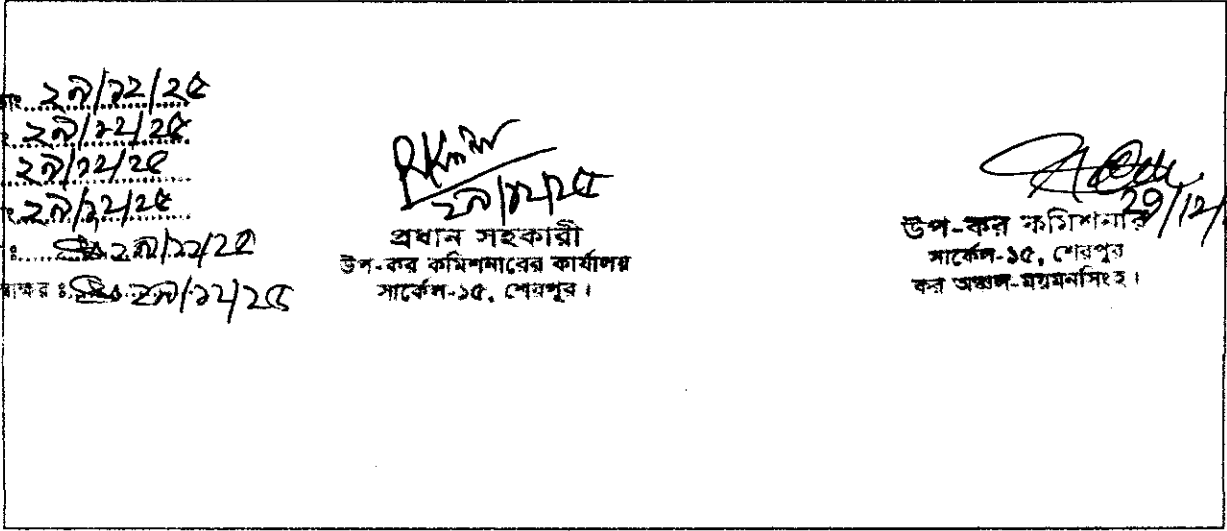 ২৯/১২/২৫
২৯/১২/২৫
২৯/১২/২৫
২৯/১২/২৫
ঃ..... ২৯/১২/২৫
ঃ ২৯/১২/২৫
২৯/১২/২৫
প্রধান সহকারী
উপ-কর কমিশনারের কার্যালয়
সার্কেল-১৫, শেরপুর।
29/12/
উপ-কর কমিশনার
সার্কেল-১৫, শেরপুর
কর অঞ্চল-ময়মনসিংহ।